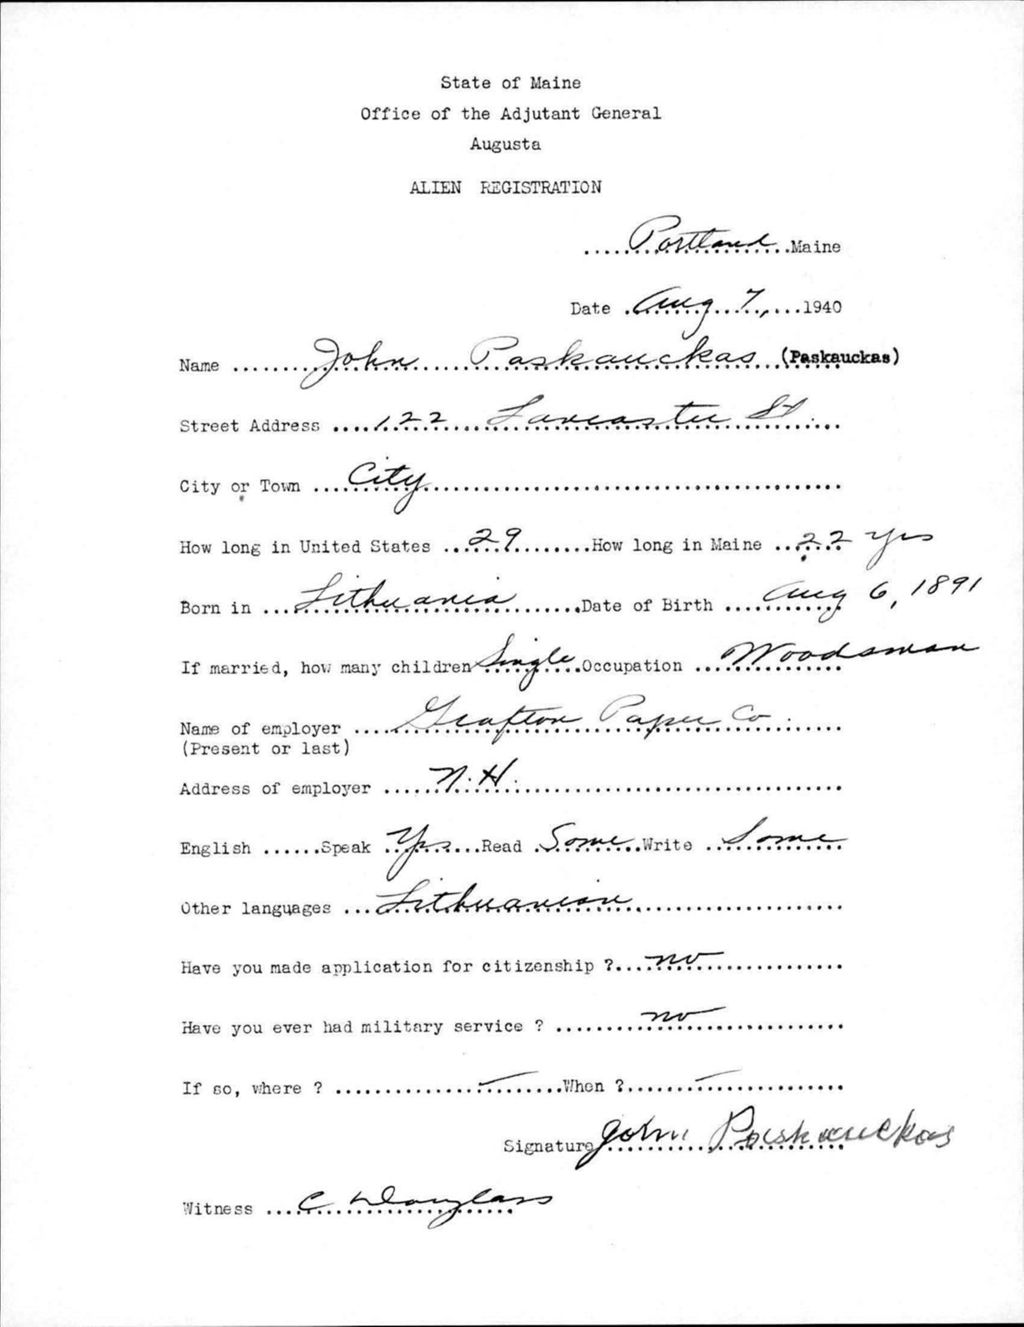 State of Maine
Office of the Adjutant General
Augusta
ALIEN REGISTRATION
.....Portland.....Maine
Date .Aug 7,...1940
Name ........John Paskauckas (Paskauckas)
Street Address ....122 Lancaster St.
City or Town ....City........
How long in United States ...29........How long in Maine ...22 yrs
Born in ...Lithuania...........Date of Birth ...Aug 6, 1891
If married, how many children Single....Occupation ...Woodsman
Name of employer ....Grafton Paper Co.
(Present or last)
Address of employer .....N.H.........
English ......Speak .Yes...Read .Some..Write ..Some
Other languages ...Lithuanian........
Have you made application for citizenship ?....no........
Have you ever had military service ? ........no........
If so, where ? ..............—........When ?.......—........
Signature John Paskauckas
Witness ...C Douglass